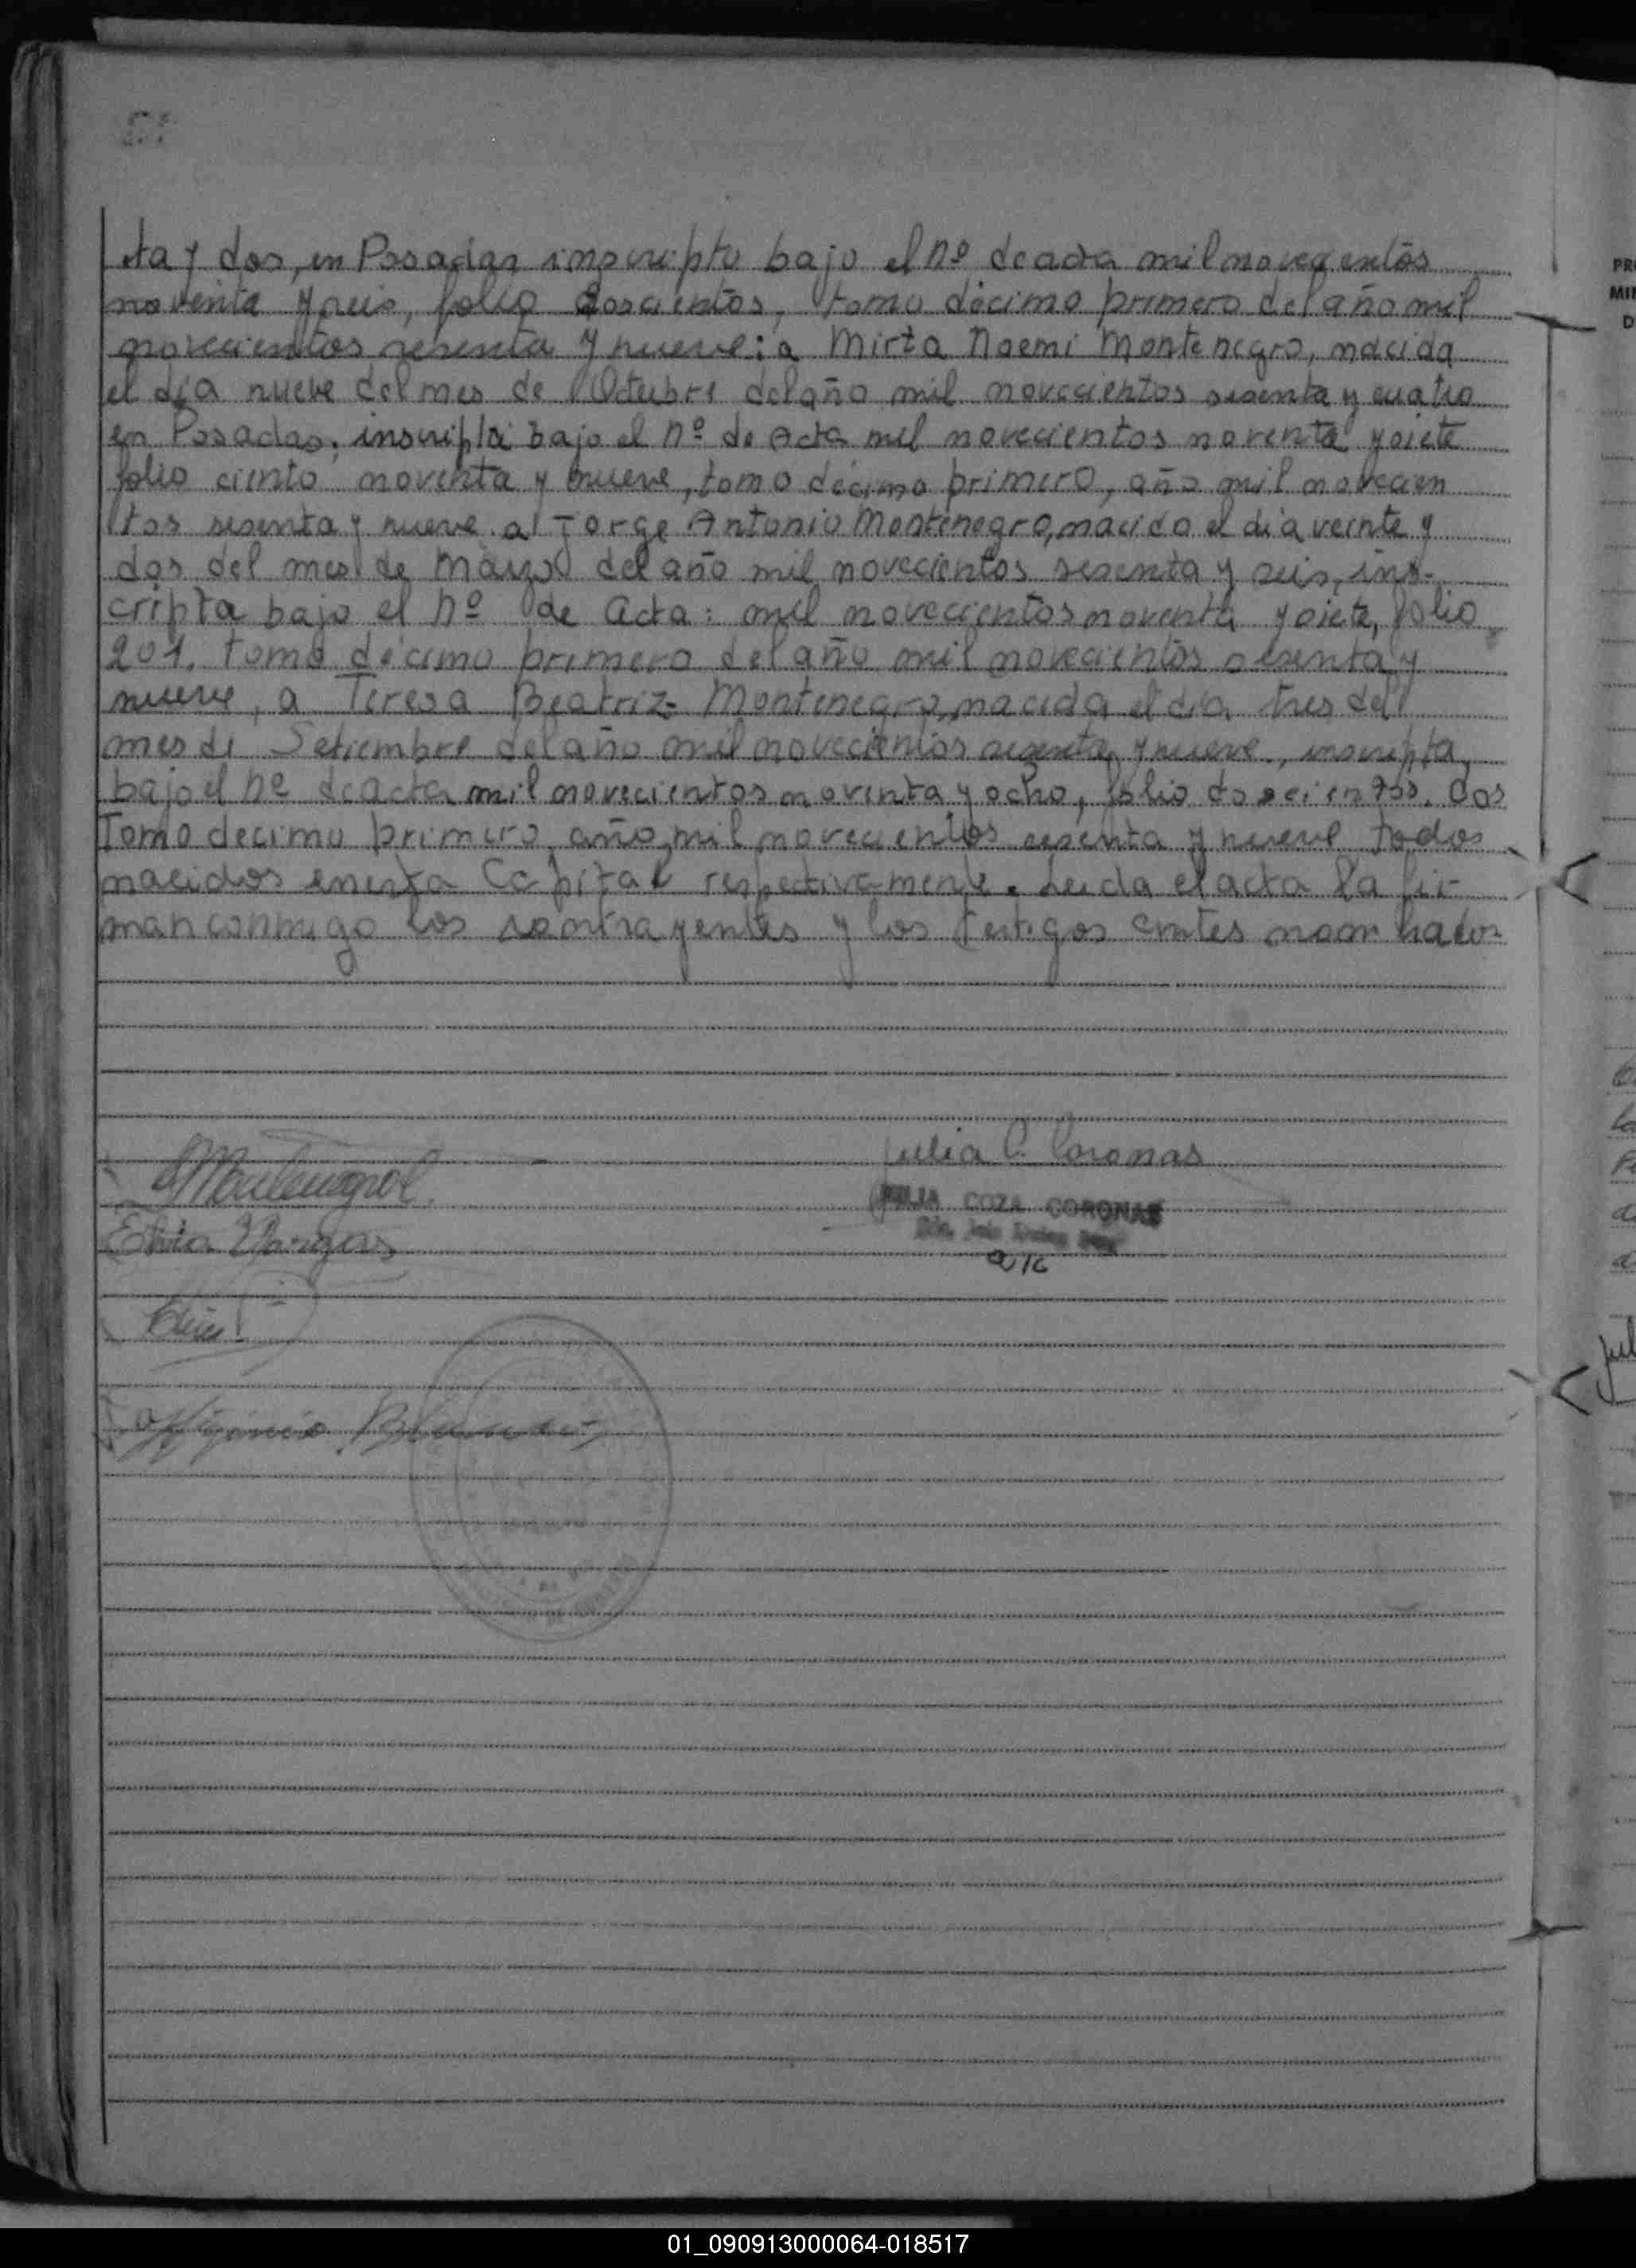 ta y dos, en Posadas inscripto bajo el nº de acta mil novecientos
noventa y seis, folio doscientos, tomo décimo primero del año mil
novecientos sesenta y nueve: a Mirta Noemi Montenegro, nacida
el día nueve del mes de Octubre del año mil novecientos sesenta y cuatro
en Posadas, inscripta bajo el nº de Acta mil novecientos noventa y siete
folio ciento noventa y nueve, tomo décimo primero, año mil novecien
tos sesenta y nueve. a Jorge Antonio Montenegro, nacido el día veinte y
dos del mes de Marzo del año mil novecientos sesenta y seis, ins-
cripta bajo el nº de Acta: mil novecientos noventa y siete, folio
201. tomo décimo primero del año mil novecientos sesenta y
nueve, a Teresa Beatriz Montenegro, nacida el día tres del
mes de Setiembre del año mil novecientos sesenta y nueve, inscripta
bajo el nº de acta mil novecientos noventa y ocho, folio doscientos. dos
Tomo decimo primero, año mil novecientos sesenta y nueve todos
nacidos en esta Capital respectivamente. Leida el acta la fir-
man conmigo los contrayentes y los testigos antes nombrados
Julia C. Coronas
Montenegro
JULIA COZA CORONAS
Elvia Vargas
a/c
01_090913000064-018517